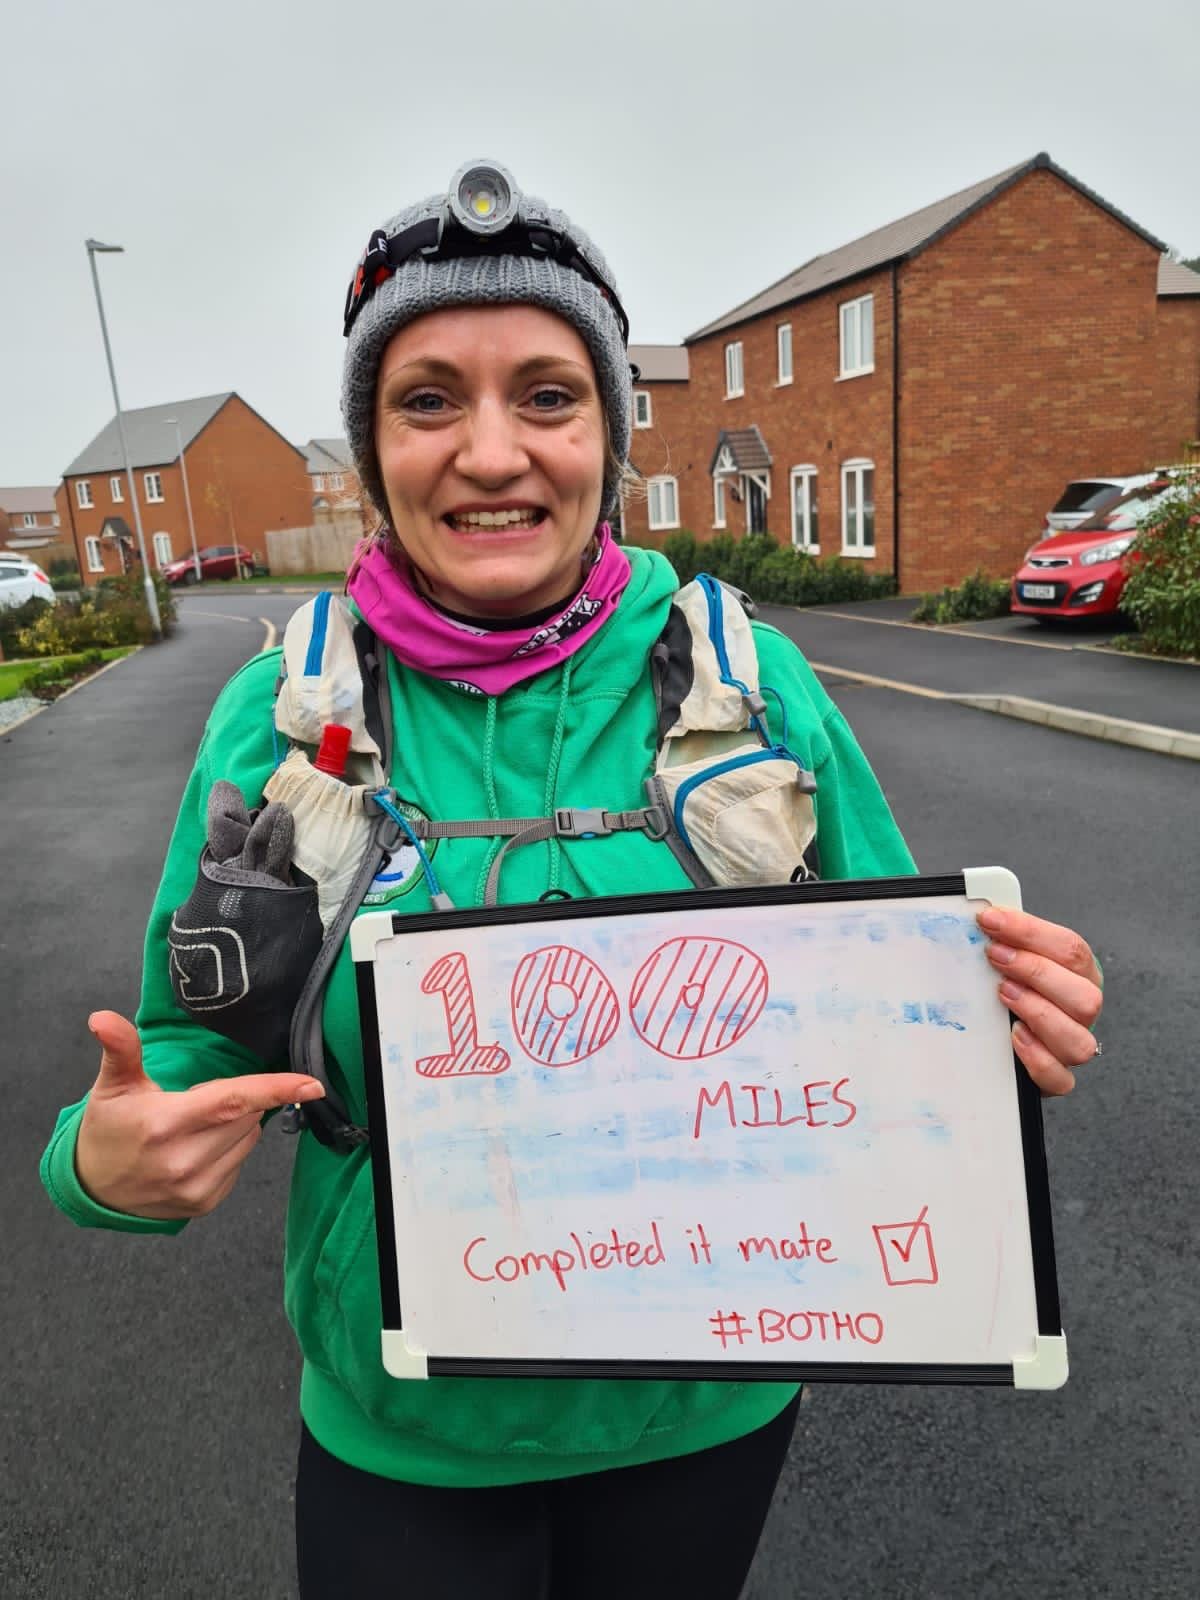 100
MILES
Completed it mate
#BOTHO